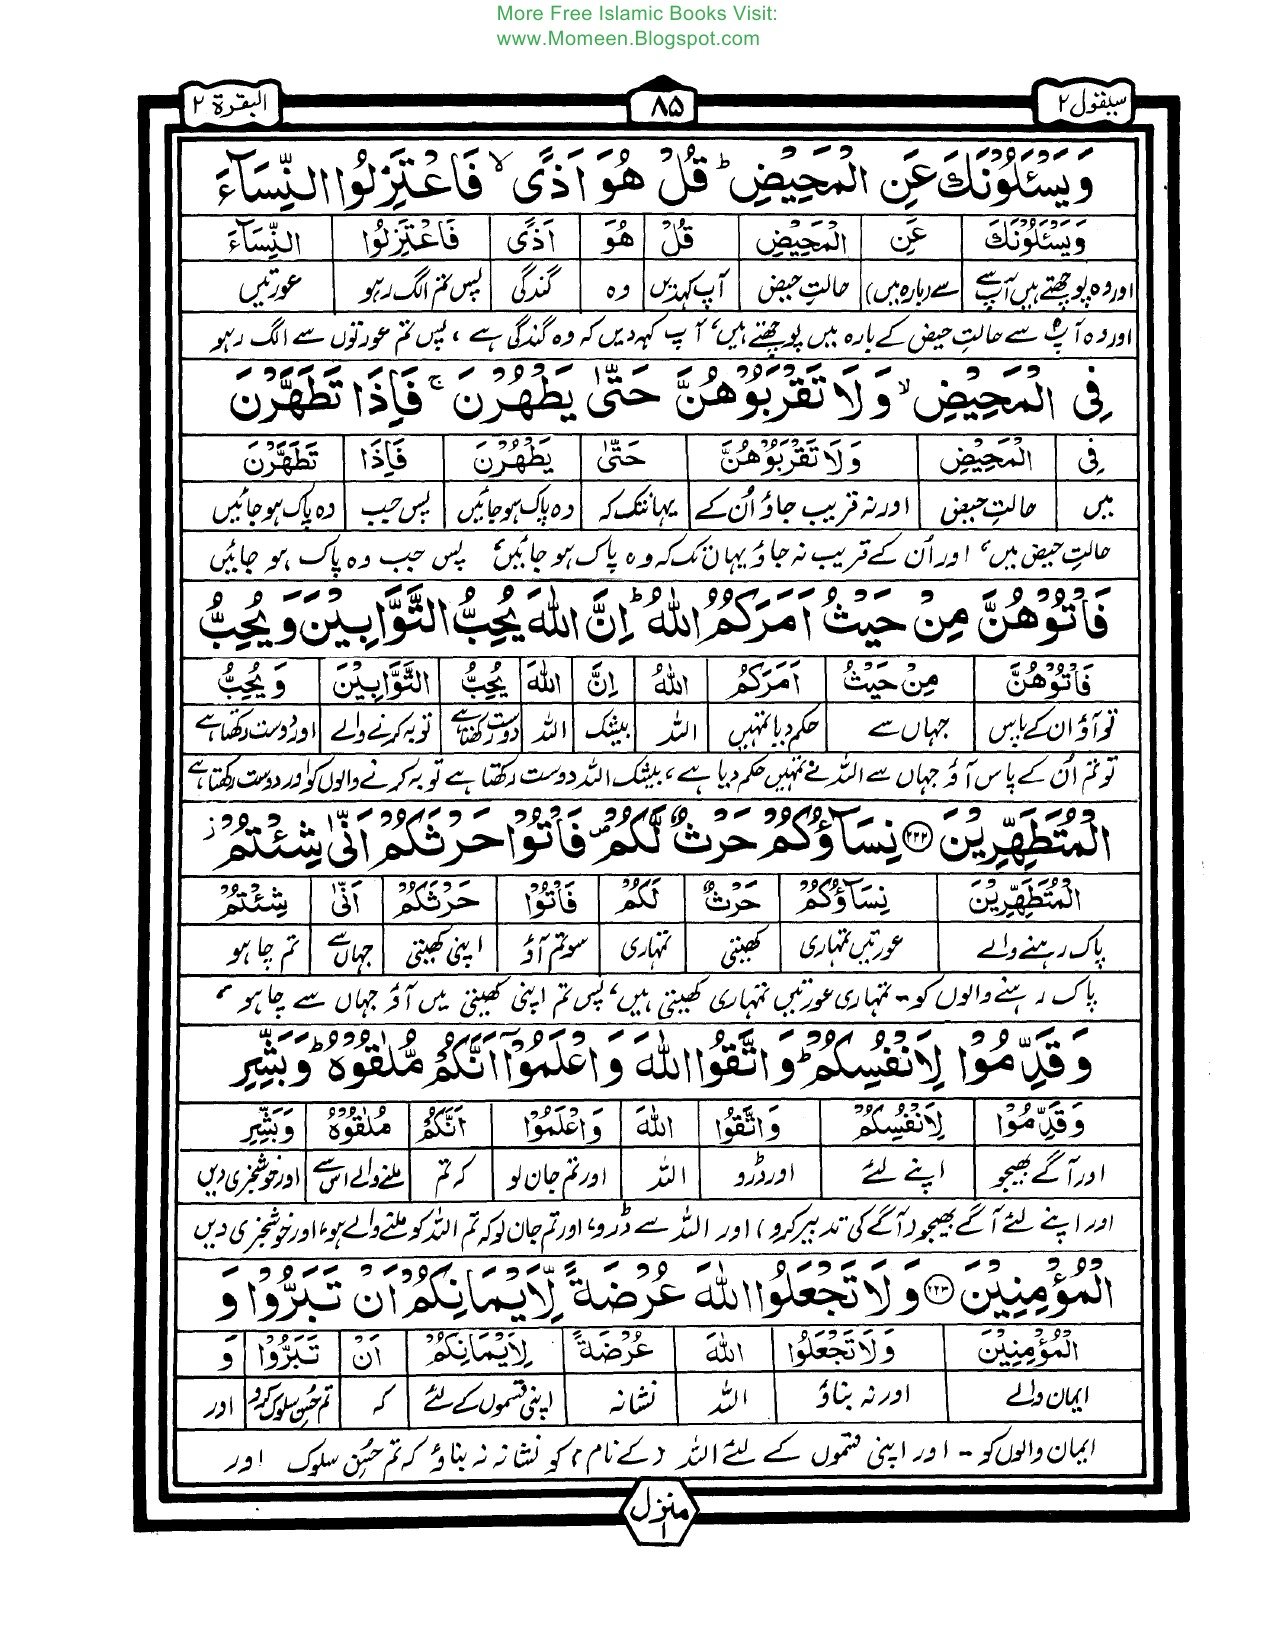 More Free Islamic Books Visit:
www.Momeen.Blogspot.com
سیقول ۲ ۸۵ البقرة ۲
وَيَسْـَٔلُوْنَكَ عَنِ الْمَحِيْضِ ؕ قُلْ هُوَ اَذًى ۙ فَاعْتَزِلُوا النِّسَآءَ
وَيَسْـَٔلُوْنَكَ عَنِ الْمَحِيْضِ قُلْ هُوَ اَذًى فَاعْتَزِلُوا النِّسَآءَ
اور وہ پوچھتے ہیں آپ سے سے (بارہ میں) حالتِ حیض آپ کہدیں وہ گندگی پس تم الگ رہو عورتیں
اور وہ آپ سے حالتِ حیض کے بارہ میں پوچھتے ہیں، آپ کہہ دیں کہ وہ گندگی ہے، پس تم عورتوں سے الگ رہو
فِى الْمَحِيْضِ ۙ وَلَا تَقْرَبُوْهُنَّ حَتّٰى يَطْهُرْنَ ۚ فَاِذَا تَطَهَّرْنَ
فِى الْمَحِيْضِ وَلَا تَقْرَبُوْهُنَّ حَتّٰى يَطْهُرْنَ فَاِذَا تَطَهَّرْنَ
میں حالتِ حیض اور نہ قریب جاؤ اُن کے یہانتک کہ وہ پاک ہوجائیں پس جب وہ پاک ہوجائیں
حالتِ حیض میں، اور اُن کے قریب نہ جاؤ یہاں تک کہ وہ پاک ہو جائیں، پس جب وہ پاک ہو جائیں
فَاْتُوْهُنَّ مِنْ حَيْثُ اَمَرَكُمُ اللّٰهُ ؕ اِنَّ اللّٰهَ يُحِبُّ التَّوَّابِيْنَ وَيُحِبُّ
فَاْتُوْهُنَّ مِنْ حَيْثُ اَمَرَكُمُ اللّٰهُ اِنَّ اللّٰهَ يُحِبُّ التَّوَّابِيْنَ وَيُحِبُّ
تو آؤ ان کے پاس جہاں سے حکم دیا تمہیں اللہ بیشک اللہ دوست رکھتا ہے توبہ کرنے والے اور دوست رکھتا ہے
تو تم اُن کے پاس آؤ جہاں سے اللہ نے تمہیں حکم دیا ہے، بیشک اللہ دوست رکھتا ہے توبہ کرنے والوں کو اور دوست رکھتا ہے
الْمُتَطَهِّرِيْنَ ۝۲۲۲ نِسَآؤُكُمْ حَرْثٌ لَّكُمْ ۪ فَاْتُوْا حَرْثَكُمْ اَنّٰى شِئْتُمْ ز
الْمُتَطَهِّرِيْنَ نِسَآؤُكُمْ حَرْثٌ لَكُمْ فَاْتُوْا حَرْثَكُمْ اَنّٰى شِئْتُمْ
پاک رہنے والے عورتیں تمہاری کھیتی تمہاری سو تم آؤ اپنی کھیتی جہاں سے تم چاہو
پاک رہنے والوں کو۔ تمہاری عورتیں تمہاری کھیتی ہیں، پس تم اپنی کھیتی میں آؤ جہاں سے چاہو،
وَقَدِّمُوْا لِاَنْفُسِكُمْ ؕ وَاتَّقُوا اللّٰهَ وَاعْلَمُوْٓا اَنَّكُمْ مُّلٰقُوْهُ ؕ وَبَشِّرِ
وَقَدِّمُوْا لِاَنْفُسِكُمْ وَاتَّقُوْا اللّٰهَ وَاعْلَمُوْا اَنَّكُمْ مُلٰقُوْهُ وَبَشِّرِ
اور آگے بھیجو اپنے لئے اور ڈرو اللہ اور تم جان لو کہ تم ملنے والے اس سے اور خوشخبری دیں
اور اپنے لئے آگے بھیجو (آگے کی تدبیر کرو) اور اللہ سے ڈرو، اور تم جان لو کہ تم اللہ کو ملنے والے ہو، اور خوشخبری دیں
الْمُؤْمِنِيْنَ ۝۲۲۳ وَلَا تَجْعَلُوا اللّٰهَ عُرْضَةً لِّاَيْمَانِكُمْ اَنْ تَبَرُّوْا وَ
الْمُؤْمِنِيْنَ وَلَا تَجْعَلُوْا اللّٰهَ عُرْضَةً لِاَيْمَانِكُمْ اَنْ تَبَرُّوْا وَ
ایمان والے اور نہ بناؤ اللہ نشانہ اپنی قسموں کے لئے کہ تم حسنِ سلوک کرو اور
ایمان والوں کو۔ اور اپنی قسموں کے لئے اللہ (کے نام) کو نشانہ نہ بناؤ کہ تم حُسنِ سلوک اور
منزل ۱